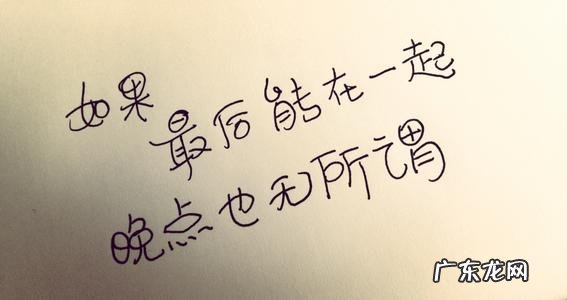 如果
最后能在一起
晚点也无所谓
广东龙网